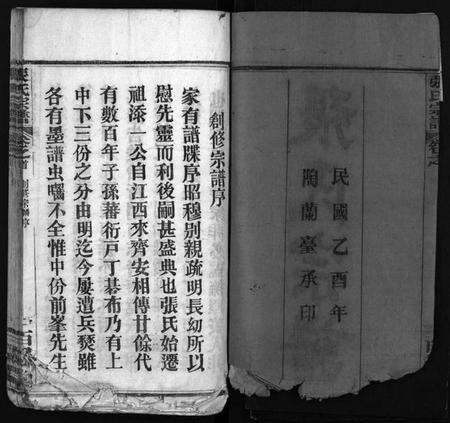 民國乙酉年
陶蘭臺承印
創修宗譜序
家有譜牒序昭穆別親疏明長幼所以
慰先靈而利後嗣甚盛典也張氏始遷
祖添一公自江西來齊安相傳廿餘代
有數百年子孫蕃衍戸丁碁布乃有上
中下三份之分由明迄今屢遭兵燹雖
各有墨譜虫囓不全惟中份前峯先生
張氏宗譜